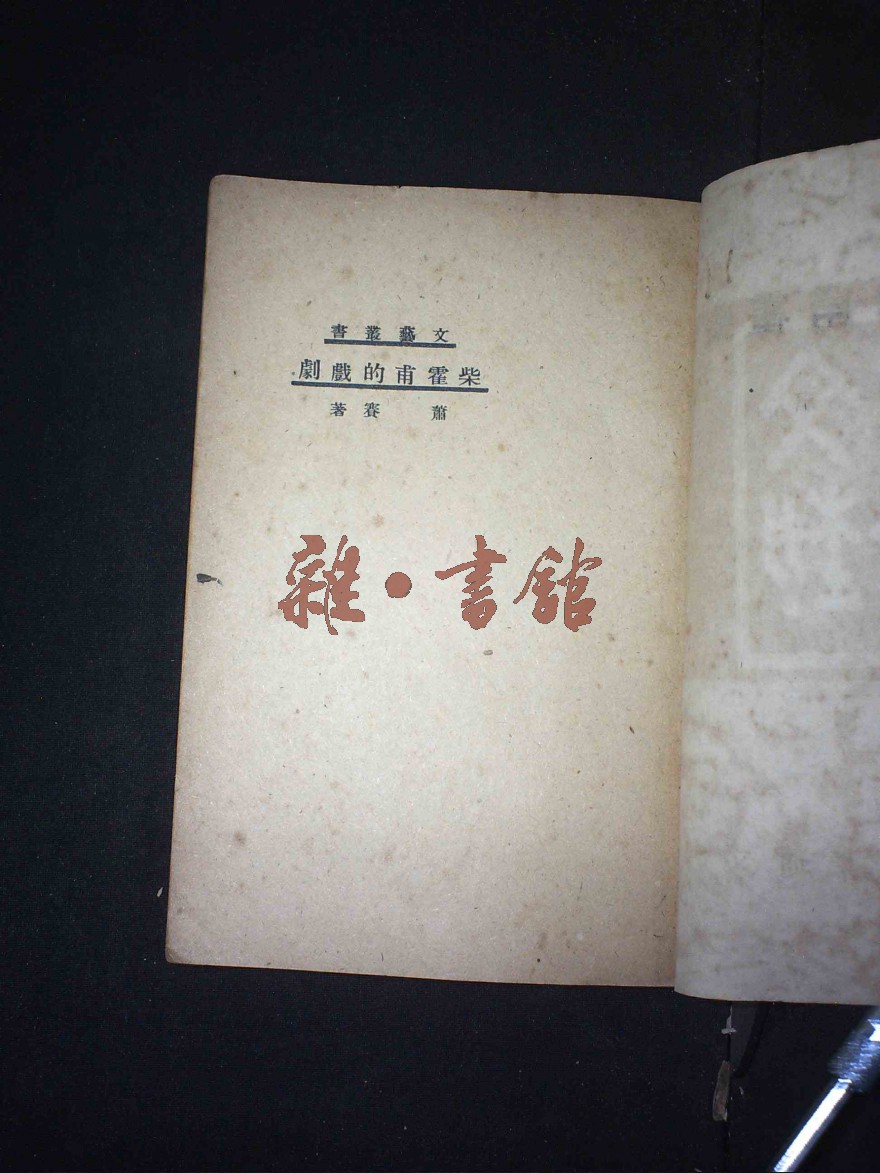 文藝叢書
柴霍甫的戲劇
蕭賽著
雜·書館